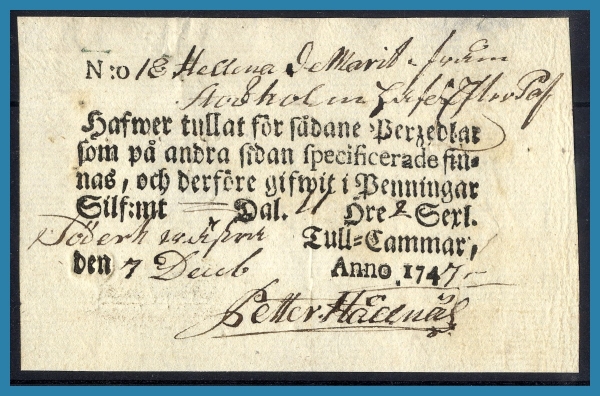 N:o 18 Hellena DeMarit från
Stockholm
Hafwer tullat för sådane Perzedlar
som på andra sidan specificerade fin-
nas, och derföre gifwit i Penningar
Silf:mt — Dal. 11 Öre 2 Sexl.
Tull-Cammar,
den 7 Decemb Anno 1747
Petter Hällnäs